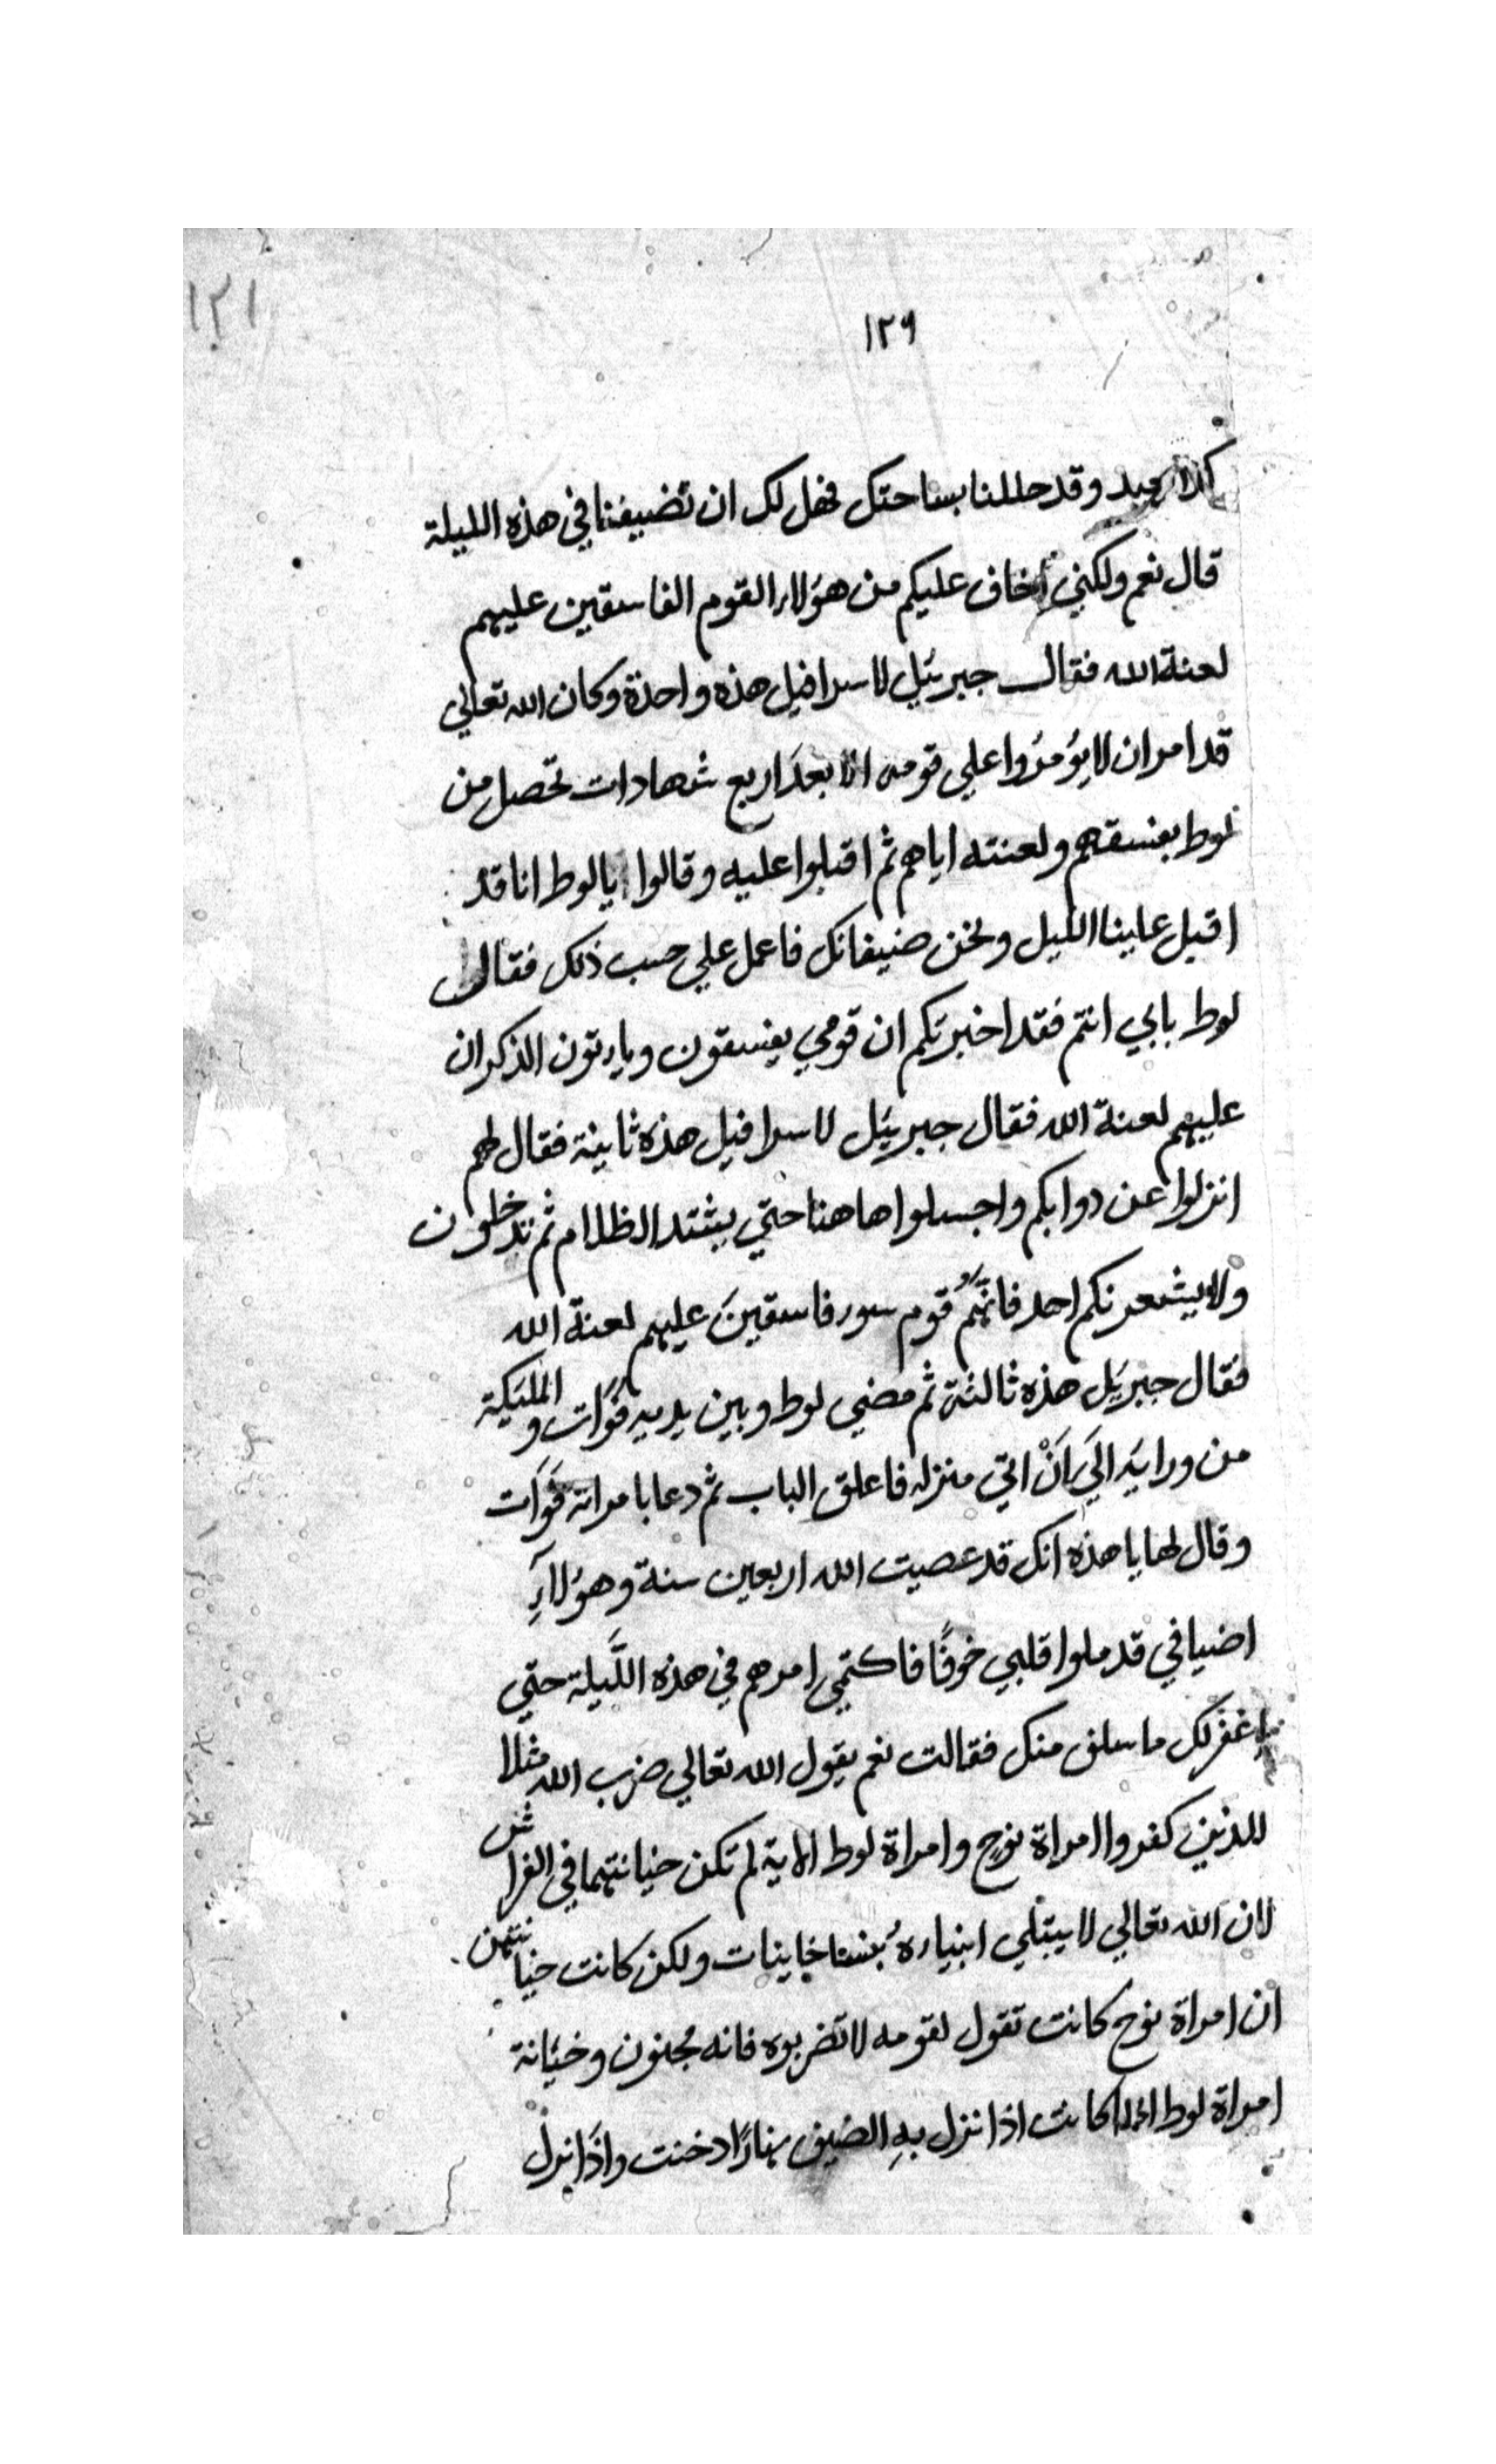 ١٢١
١٢٩
وقد حللنا بساحتك فهل لك ان تضيفنا في هذه الليلة
قال نعم ولكني اخاف عليكم من هؤلاء القوم الفاسقين عليهم
لعنة الله فقال جبرئيل لاسرافيل هذه واحدة وكان الله تعالي
قد امر ان لا يؤمروا علي قومه الا بعد اربع شهادات تحصل من
لوط بفسقهم ولعنته اياهم ثم اقبلوا عليه وقالوا يا لوط انا قد
اقبل علينا الليل ونحن ضيفانك فاعمل علي حسب ذلك فقال
لوط بابي انتم فقد اخبرتكم ان قومي يفسقون وياتون الذكران
عليهم لعنة الله فقال جبرئيل لاسرافيل هذه ثانية فقال لهم
انزلوا عن دوابكم واجسلوا هاهنا حتي يشتد الظلام ثم تدخلون
ولا يشعرنكم احد فانهم قوم سوء فاسقين عليهم لعنة الله
فقال جبريل هذه ثالثة ثم مضي لوط وبين يديه قوات والمليكة
من ورايه الي ان اتي منزله فاغلق الباب ثم دعا بامراته قوات
وقال لها يا هذه انك قد عصيت الله اربعين سنة وهؤلاء
اضيافي قد ملوا قلبي خوفًا فاكتمي امرهم في هذه الليلة حتي
اغفر لك ما سلف منك فقالت نعم يقول الله تعالي ضرب الله مثلا
للذين كفروا امراة نوح وامراة لوط الاية لم تكن خيانتهما في الفراش
لان الله تعالي لا يبتلي انبياءه بنسا خاينات ولكن كانت خيانتهن
ان امراة نوح كانت تقول لقومه لا تضربوه فانه مجنون وخيانة
امراة لوط انها كانت اذا نزل به الضيف نهارًا دخنت واذا نزل